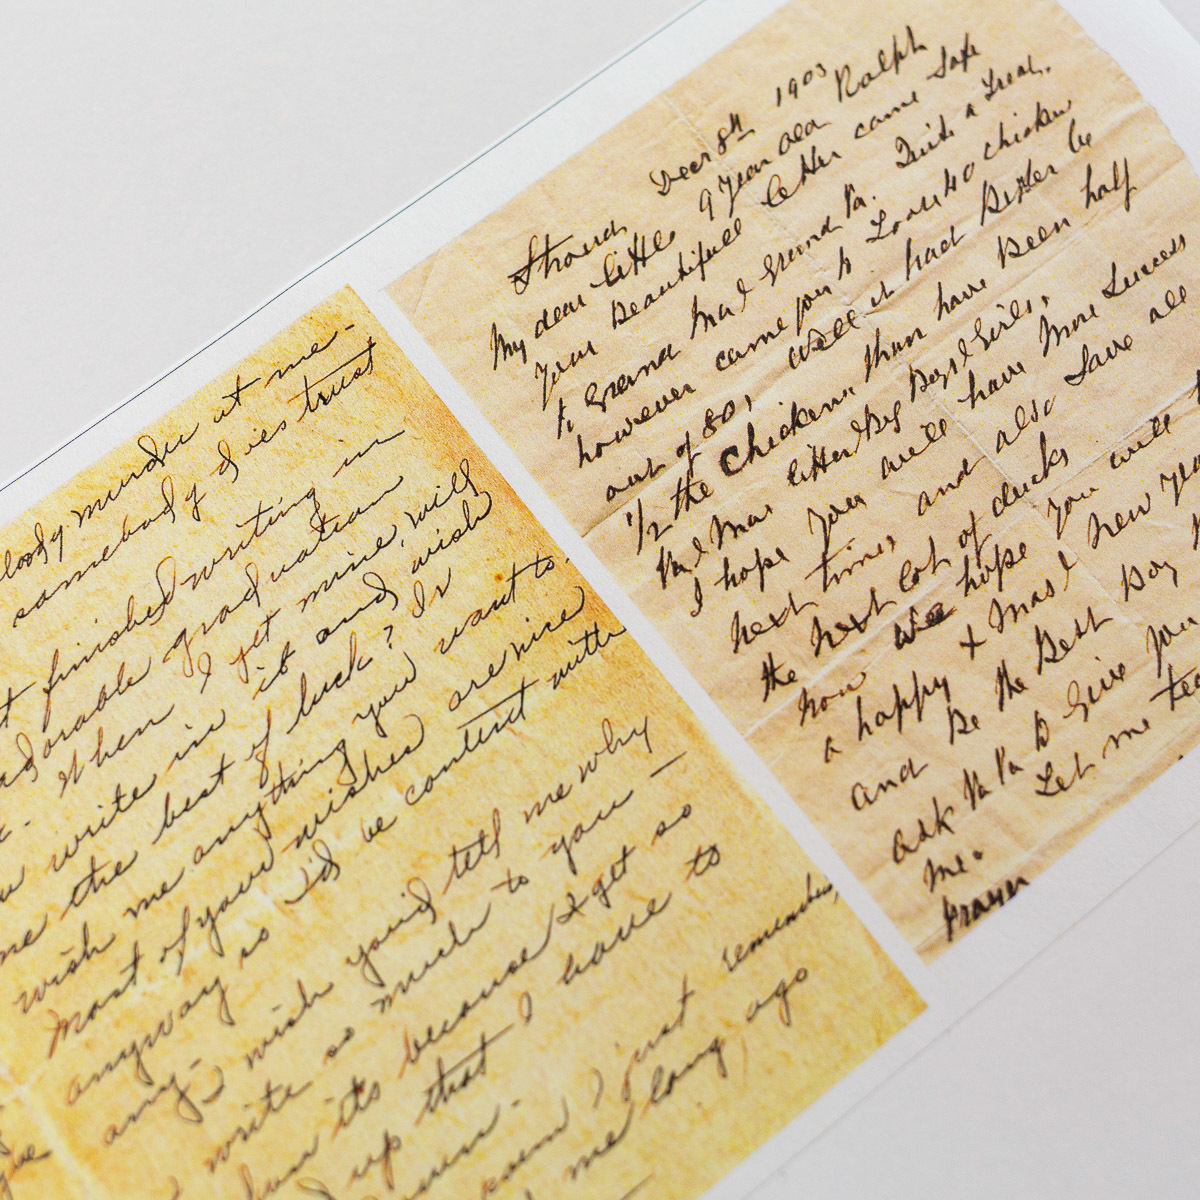 bloody murder at me-
somebody I ies trust
finished writing in
adorable graduation
When I get mine, will
write in it and wish
me the best of luck? Or
wish me anything you want to.
Most of your wishes are nice
anyway so I'd be content with
any-
I wish you'd tell me why
write so much to you —
its because I get so
up that I have to
just remember,
me long ago
Decr 8th 1903
Stroud
My dear little 9 year old Ralph
Your Beautifull letter came safe
to Grand Ma & Grand Pa. Quite a Treat.
however came you to Loose 40 chicken
out of 80, Well it had Better be
1/2 the Chickens than have Been half
Pa & Mas little Big Boys & Girls,
I hope you will have More Success
next time and also Save all
the next lot of ducks
now we hope you will
a happy + Mas & New Year
and Be the Best Boy
ask Pa Pa to Give you
me. Let me